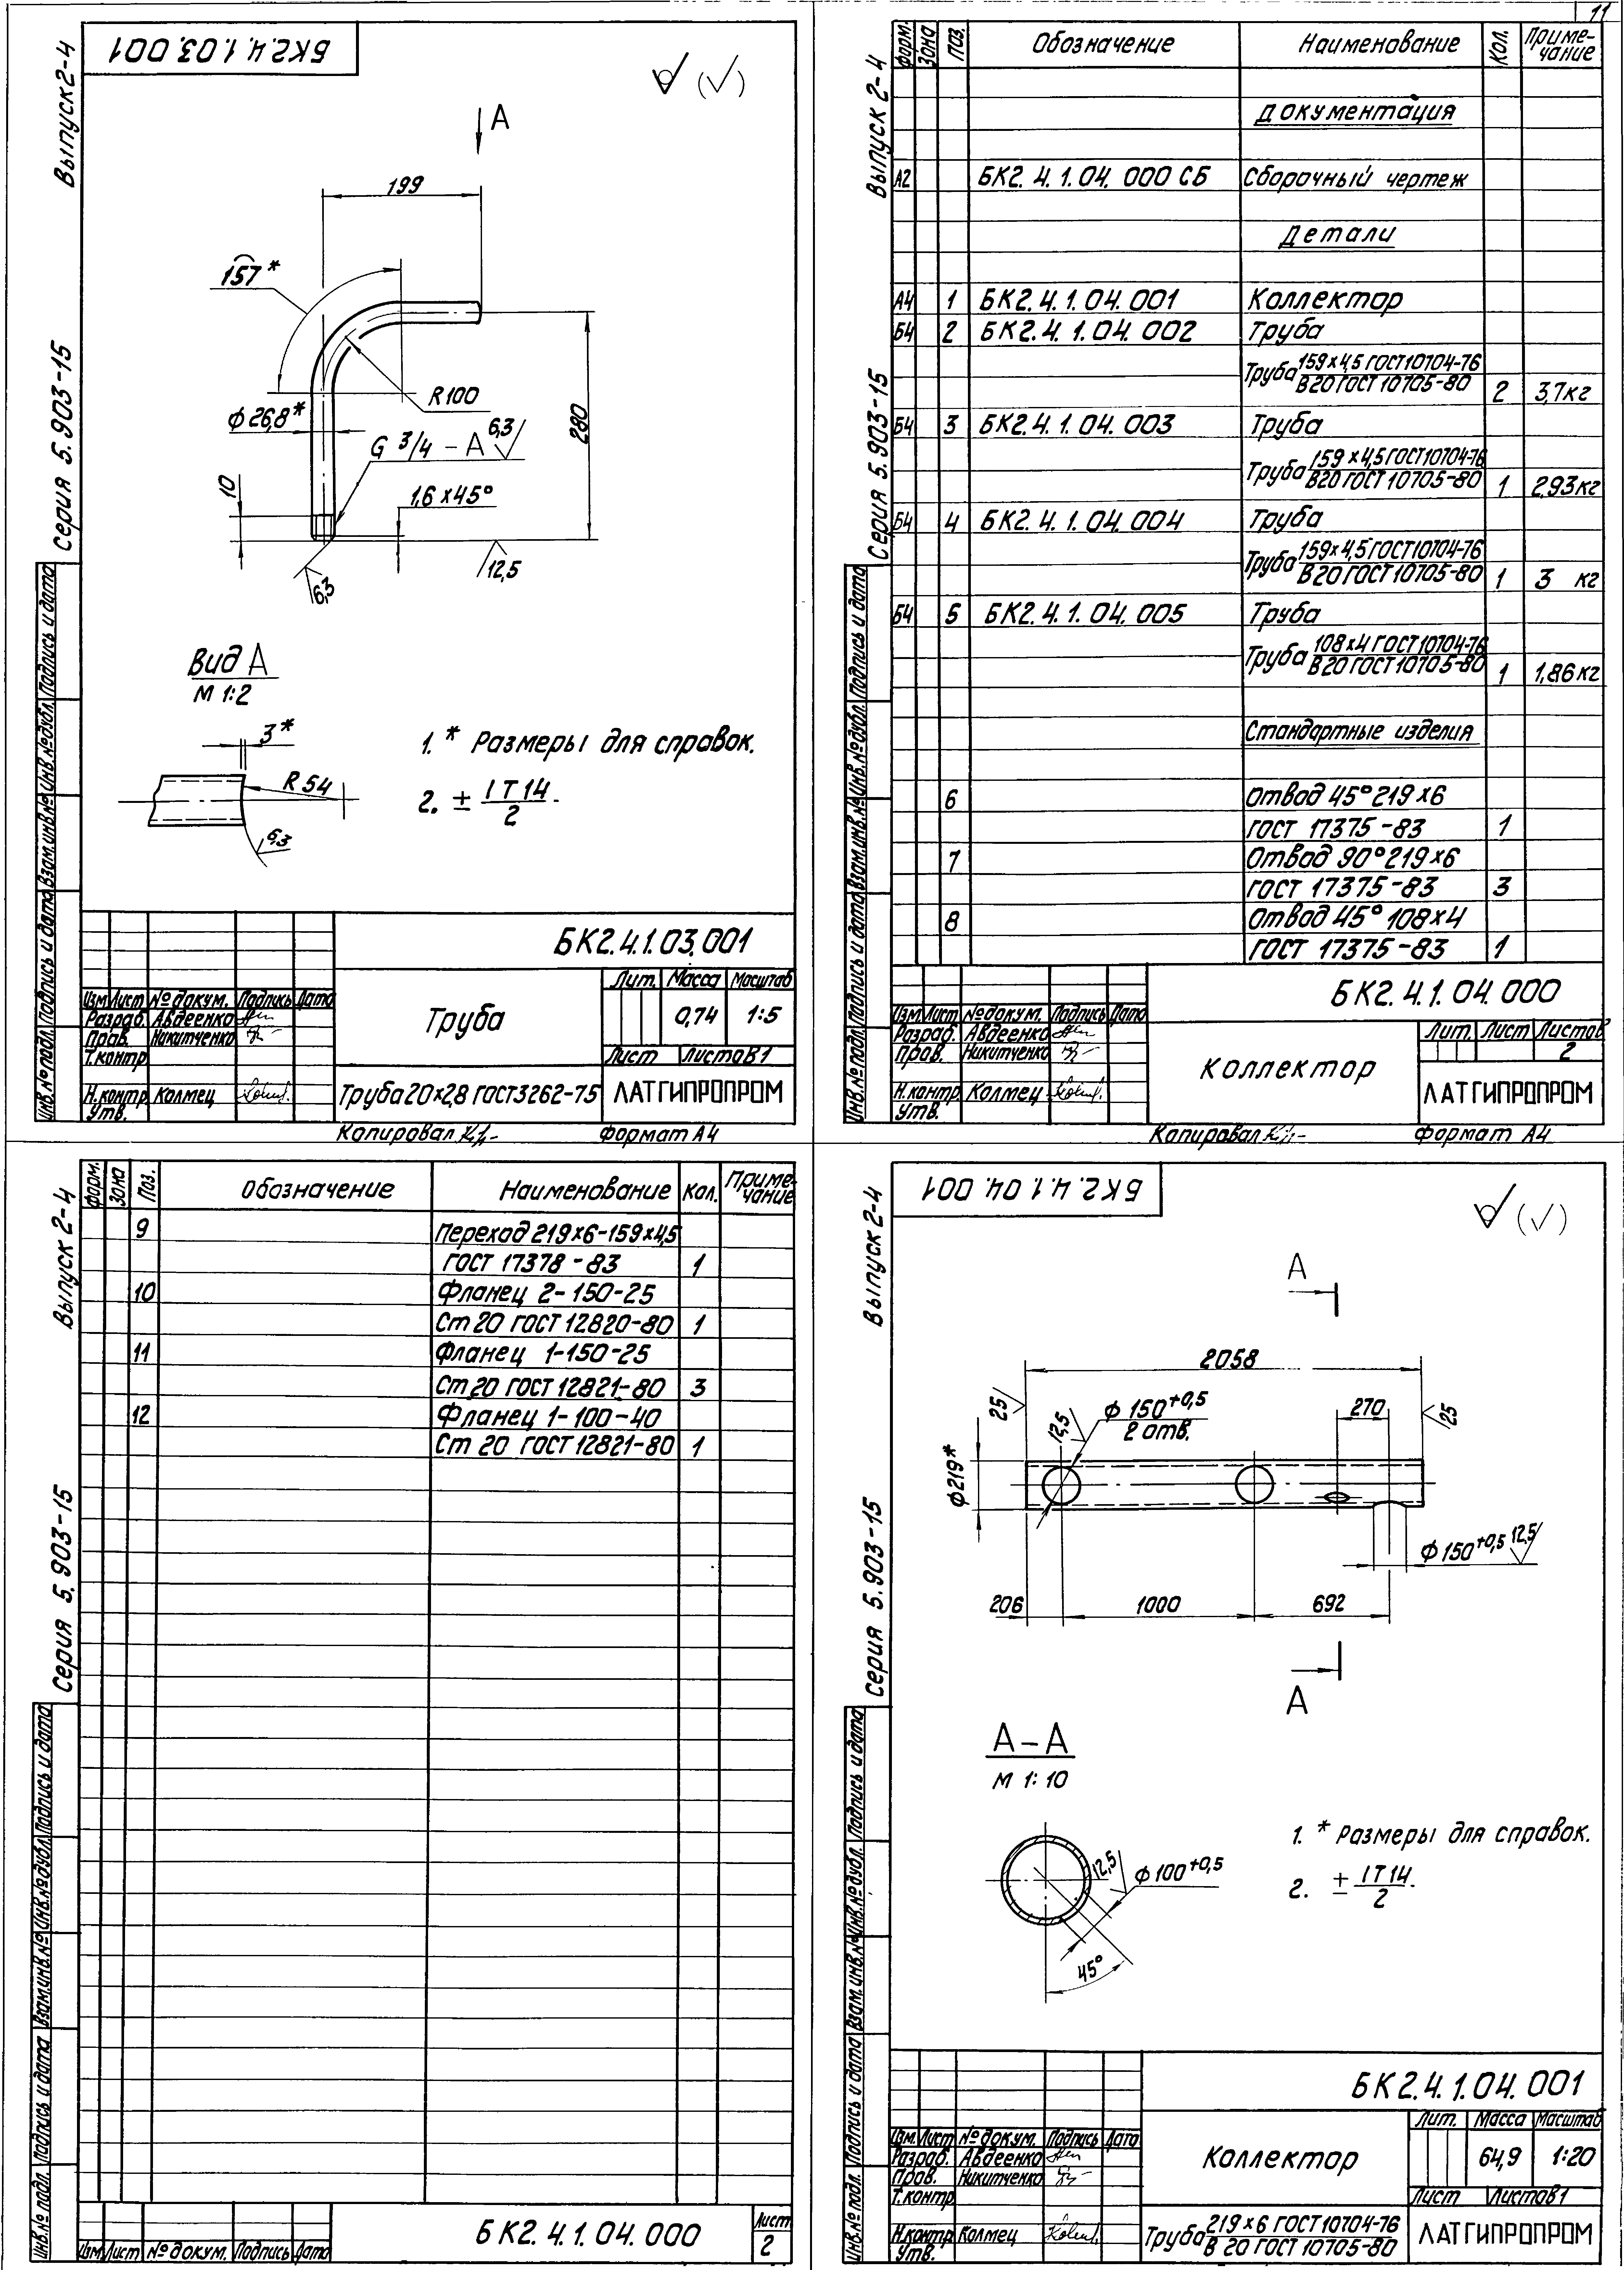 11
БК2.4.1.03.001
Выпуск 2-4
Серия 5.903-15
А
199
157*
R100
⌀26,8*
G 3/4 - А 6,3
280
10
1,6×45°
6,3
12,5
Вид А
М 1:2
3*
R 54
6,3
1. * Размеры для справок.
2. ± IT14/2
Инв.№подл. Подпись и дата Взам.инв.№ Инв.№дубл. Подпись и дата
БК2.4.1.03.001
Изм Лист № докум. Подпись Дата
Разраб. Авдеенко
Пров. Никитченко
Т.контр
Н.контр Колмец
Утв.
Труба
Лит. Масса Масштаб
0,74 1:5
Лист Листов 1
Труба 20×2,8 ГОСТ3262-75
ЛАТГИПРОПРОМ
Копировал
Формат А4
Выпуск 2-4
Серия 5.903-15
Форм. Зона Поз. Обозначение Наименование Кол. Примечание
Документация
А2 БК2.4.1.04.000 СБ Сборочный чертеж
Детали
А4 1 БК2.4.1.04.001 Коллектор
Б4 2 БК2.4.1.04.002 Труба
Труба 159×4,5 ГОСТ10704-76
В20 ГОСТ 10705-80 2 3,7кг
Б4 3 БК2.4.1.04.003 Труба
Труба 159×4,5 ГОСТ10704-76
В20 ГОСТ 10705-80 1 2,93кг
Б4 4 БК2.4.1.04.004 Труба
Труба 159×4,5 ГОСТ10704-76
В20 ГОСТ 10705-80 1 3 кг
Б4 5 БК2.4.1.04.005 Труба
Труба 108×4 ГОСТ10704-76
В20 ГОСТ 10705-80 1 1,86кг
Стандартные изделия
6 Отвод 45° 219×6
ГОСТ 17375-83 1
7 Отвод 90° 219×6
ГОСТ 17375-83 3
8 Отвод 45° 108×4
ГОСТ 17375-83 1
Инв.№подл. Подпись и дата Взам.инв.№ Инв.№дубл. Подпись и дата
БК2.4.1.04.000
Изм Лист № докум. Подпись Дата
Разраб. Авдеенко
Пров. Никитченко
Н.контр. Колмец
Утв.
Коллектор
Лит. Лист Листов
2
ЛАТГИПРОПРОМ
Копировал
Формат А4
Выпуск 2-4
Серия 5.903-15
Форм. Зона Поз. Обозначение Наименование Кол. Примечание
9 Переход 219×6-159×4,5
ГОСТ 17378-83 1
10 Фланец 2-150-25
Ст 20 ГОСТ 12820-80 1
11 Фланец 1-150-25
Ст 20 ГОСТ 12821-80 3
12 Фланец 1-100-40
Ст 20 ГОСТ 12821-80 1
Инв.№подл. Подпись и дата Взам.инв.№ Инв.№дубл. Подпись и дата
Изм Лист № докум. Подпись Дата
БК2.4.1.04.000
Лист
2
БК2.4.1.04.001
Выпуск 2-4
Серия 5.903-15
А
2058
25
12,5
⌀150+0,5
2 отв.
270
25
⌀219*
⌀150+0,5 12,5
206
1000
692
А
А-А
М 1:10
12,5
⌀100+0,5
45°
1. * Размеры для справок.
2. ± IT14/2
Инв.№подл. Подпись и дата Взам.инв.№ Инв.№дубл. Подпись и дата
БК2.4.1.04.001
Изм. Лист № докум. Подпись Дата
Разраб. Авдеенко
Пров. Никитченко
Т.контр
Н.контр Колмец
Утв.
Коллектор
Лит. Масса Масштаб
64,9 1:20
Лист Листов 1
Труба 219×6 ГОСТ10704-76
В 20 ГОСТ 10705-80
ЛАТГИПРОПРОМ